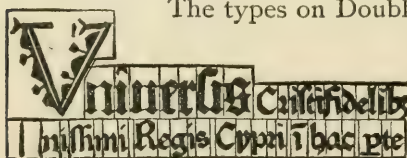 The types on Doubl
Vniuersis Cristifidelibꝫ
nissimi Regis Cypri ī hac ꝑte